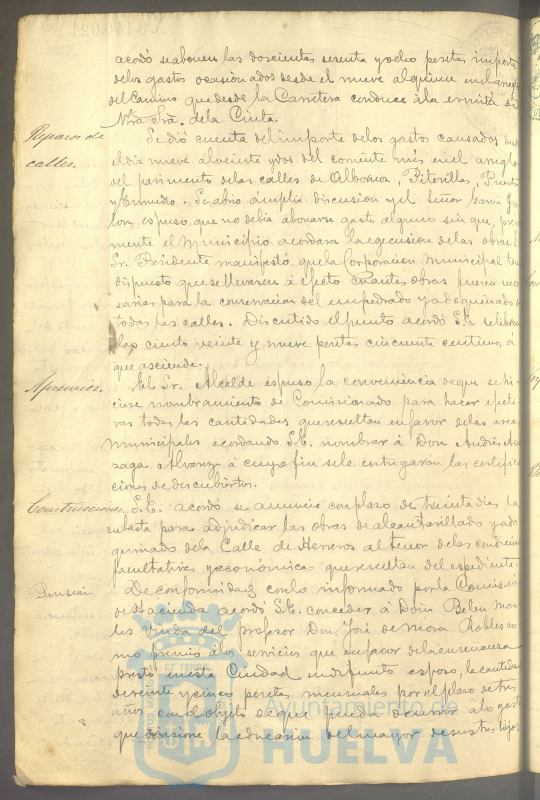 acordó se abonen las doscientas setenta y ocho pesetas importe
de los gastos ocasionados desde el nueve al quince en el arreglo
del Camino que desde la Carretera conduce á la ermita de
Ntra Sra. de la Cinta.
Reparos de calles.
Se dió cuenta del importe de los gastos causados desde
el dia nueve al veinte y dos del corriente mes en el arreglo
del pavimento de las calles de Albornoz, Piterilla, Puerto
y Enmedio. Se abrio ámplia discusion y el Señor Garcia
espuso que no debia abonarse gasto alguno sin que, previa
mente el Municipio acordara la ejecucion de las obras. El
Sr. Presidente manifestó que la Corporacion Municipal tenia
dispuesto que se llevaren á efecto cuantas obras fueren nece
sarias para la conservacion del empedrado y adoquinado de
todas las calles. Discutido el punto acordó S.E. se libren
las ciento veinte y nueve pesetas cincuenta centimos á
que asciende.
Apremios.
El Sr. Alcalde espuso la conveniencia de que se hi
ciese nombramiento de Comisionado para hacer efecti
vas todas las cantidades que resultan en favor de las arcas
municipales acordando S.E. nombrar á Don Andrés
Alvarez á cuyo fin se le entregarán las certifica
ciones de descubiertos.
Construcciones.
S.E. acordó se anuncie con plazo de treinta dias la
subasta para adjudicar las obras de alcantarillado y ado
quinado de la Calle de Herreros al tenor de las condiciones
facultativas y económicas que resultan del espediente.
Pension
De conformidad con lo informado por la Comision
de Hacienda acordó S.E. conceder á Doña Belen Mora
les viuda del profesor Don José de Mora Robles co
mo premio á los servicios que en favor de la enseñanza
prestó en esta Ciudad su difunto esposo, la cantidad
de veinte y cinco pesetas mensuales por el plazo de tres
años con objeto de que pueda ocurrir a los gastos
que ocasione la educacion del mayor de sus tres hijos
Ayuntamiento de
HUELVA